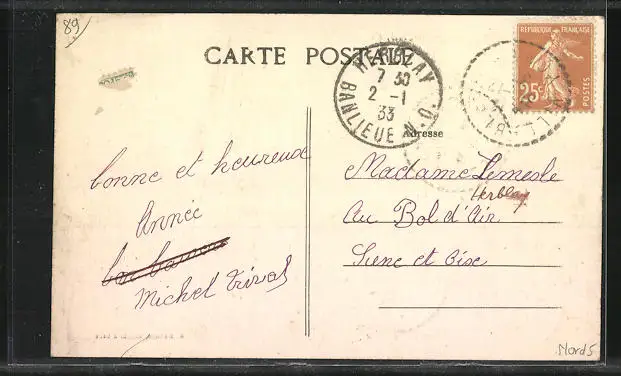 89
CARTE POSTALE
RÉPUBLIQUE FRANÇAISE
25c
POSTES
HERBLAY
7 30
2 -1
33
BANLIEUE N.O.
Adresse
bonne et heureuse
Année
Michel
Madame Lemesle
Herblay
Au Bol d'Air
Seine et Oise
Nord 5